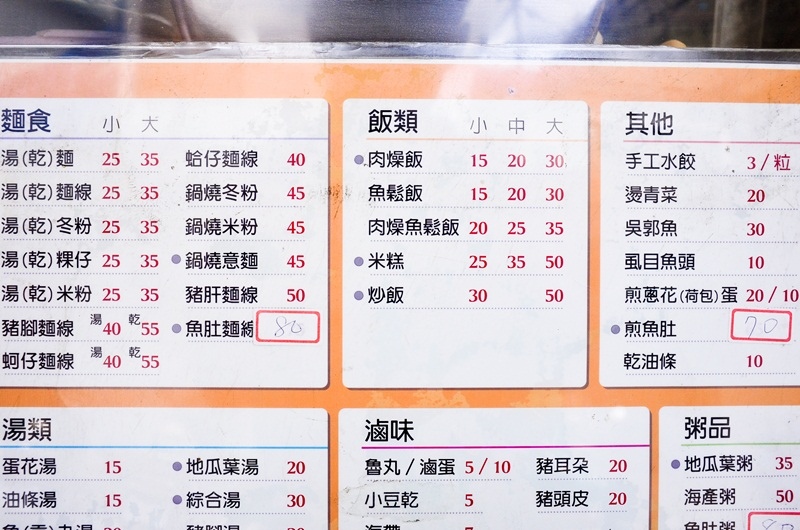 麵食 小 大
湯(乾)麵 25 35
湯(乾)麵線 25 35
湯(乾)冬粉 25 35
湯(乾)粿仔 25 35
湯(乾)米粉 25 35
豬腳麵線 湯40 乾55
蚵仔麵線 湯40 乾55
蛤仔麵線 40
鍋燒冬粉 45
鍋燒米粉 45
鍋燒意麵 45
豬肝麵線 50
魚肚麵線 80
飯類 小 中 大
肉燥飯 15 20 30
魚鬆飯 15 20 30
肉燥魚鬆飯 20 25 35
米糕 25 35 50
炒飯 30 50
其他
手工水餃 3/粒
燙青菜 20
吳郭魚 30
虱目魚頭 10
煎蔥花(荷包)蛋 20/10
煎魚肚 70
乾油條 10
湯類
蛋花湯 15
油條湯 15
地瓜葉湯 20
綜合湯 30
滷味
魯丸/滷蛋 5/10
小豆乾 5
豬耳朶 20
豬頭皮 20
粥品
地瓜葉粥 35
海產粥 50